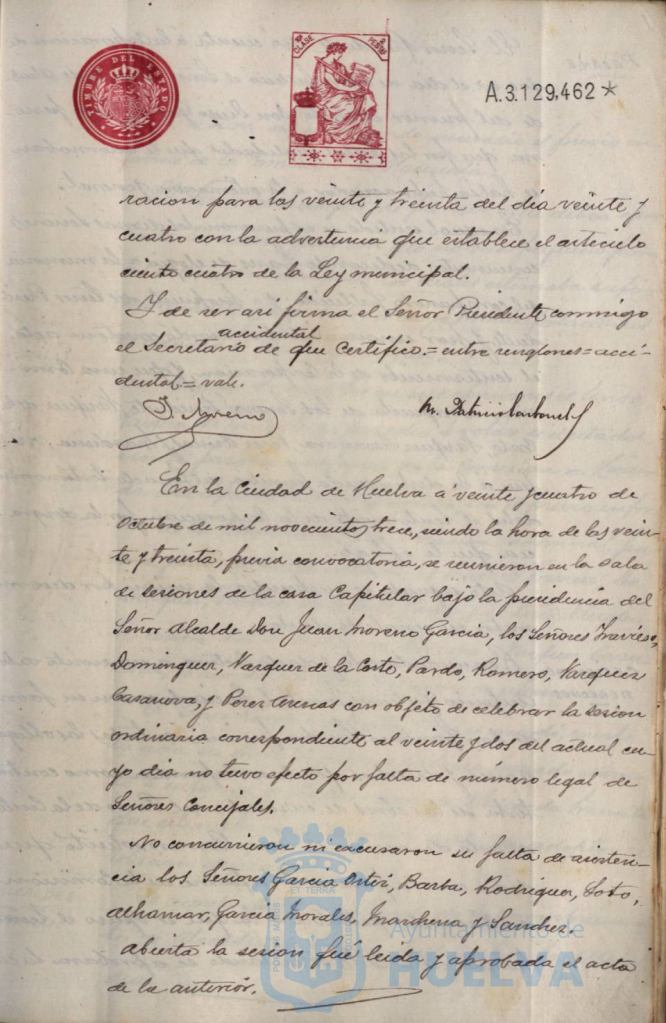 TIMBRE DEL ESTADO
10ª CLASE
2 PESETAS
A.3.129,462*
racion para las veinte y treinta del dia veinte y
cuatro con la advertencia que establece el articulo
ciento cuatro de la Ley municipal.
Y de ser asi firma el Señor Presidente conmigo
accidental
el Secretario de que certifico.= entre renglones= acci-
dental.= vale.
J. Moreno
En la Ciudad de Huelva á veinte y cuatro de
Octubre de mil novecientos trece, siendo la hora de las vein-
te y treinta, previa convocatoria, se reunieron en la sala
de sesiones de la casa Capitular bajo la presidencia del
Señor Alcalde Don Juan Moreno Garcia, los Señores Travieso,
Dominguez, Vazquez de la Corte, Pardo, Romero, Vazquez
Casanova, y Perez Arenas con objeto de celebrar la sesion
ordinaria correspondiente al veinte y dos del actual cu-
yo dia no tuvo efecto por falta de número legal de
Señores Concejales.
No concurrieron ni excusaron su falta de asisten-
cia los Señores Garcia Ortiz, Barba, Rodriguez, Soto,
Alhamar, Garcia Morales, Marchena y Sanchez.
Abierta la sesion fué leida y aprobada el acta
de la anterior.
Ayuntamiento de
HUELVA